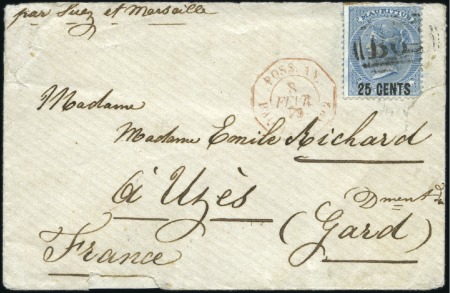 par Suez et Marseille
MAURITIUS
B53
25 CENTS
POSS. AN.
8
FEVR
79
Madame
Madame Emile Richard
à Uzès
Dment
(Gard)
France